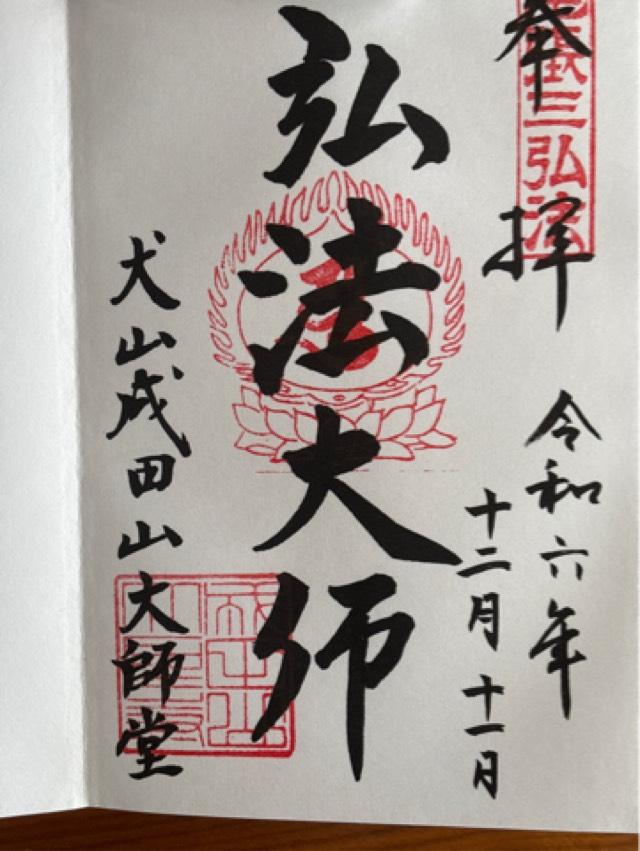 奉拝
令和六年
十二月十一日
弘法大师
犬山成田山大師堂
三弘法